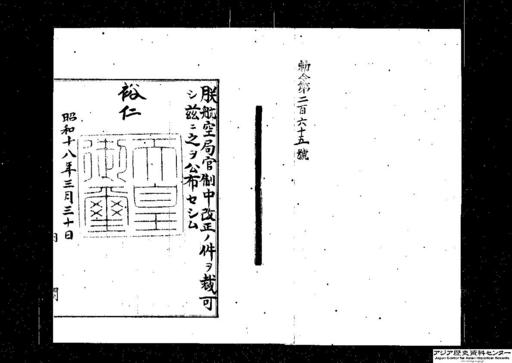 勅令第二百六十五號
朕航空局官制中改正ノ件ヲ裁可
シ茲ニ之ヲ公布セシム
裕仁
天皇
御璽
昭和十八年三月三十日
アジア歴史資料センター
Japan Center for Asian Historical Records